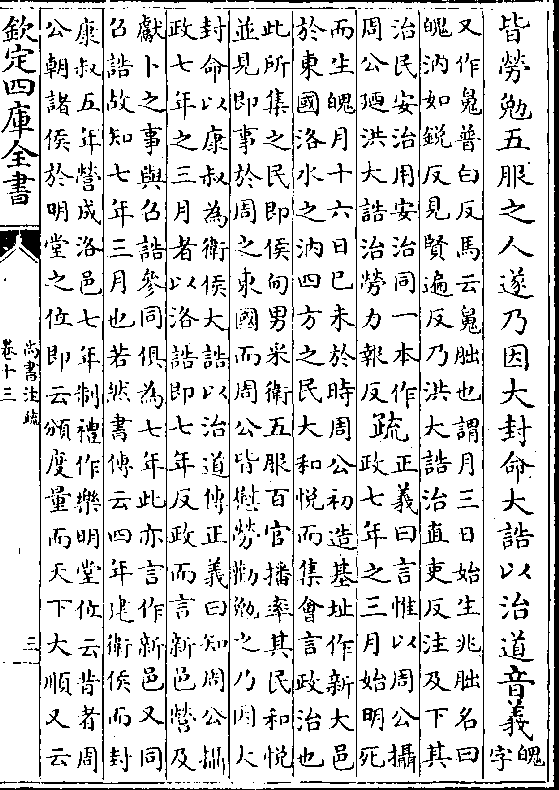 皆勞勉五服之人遂乃因大封命大誥以治道音義魄字
又作䰟普白反馬云䰟朏也謂月三日始生兆朏名曰
魄汭如銳反見賢遍反乃洪大誥治直吏反注及下其
治民安治用安治同一本作
周公廼洪大誥治勞力報反疏正義曰言惟以周公攝
政七年之三月始明死
而生魄月十六日己未於時周公初造基址作新大邑
於東國洛水之汭四方之民大和悅而集會言政治也
此所集之民即侯甸男采衛五服百官播率其民和悅
並見即事於周之東國而周公皆慰勞勸勉之乃因大
封命以康叔為衛侯大誥以治道傳正義曰知周公攝
政七年之三月者以洛誥即七年反政而言新邑營及
獻卜之事與召誥參同俱為七年此亦言作新邑又同
召誥故知七年三月也若然書傳云四年建衛侯而封
康叔五年營成洛邑七年制禮作樂明堂位云昔者周
公朝諸侯於明堂之位即云頒度量而天下大順又云
欽定四庫全書
尚書注疏
卷十三
三